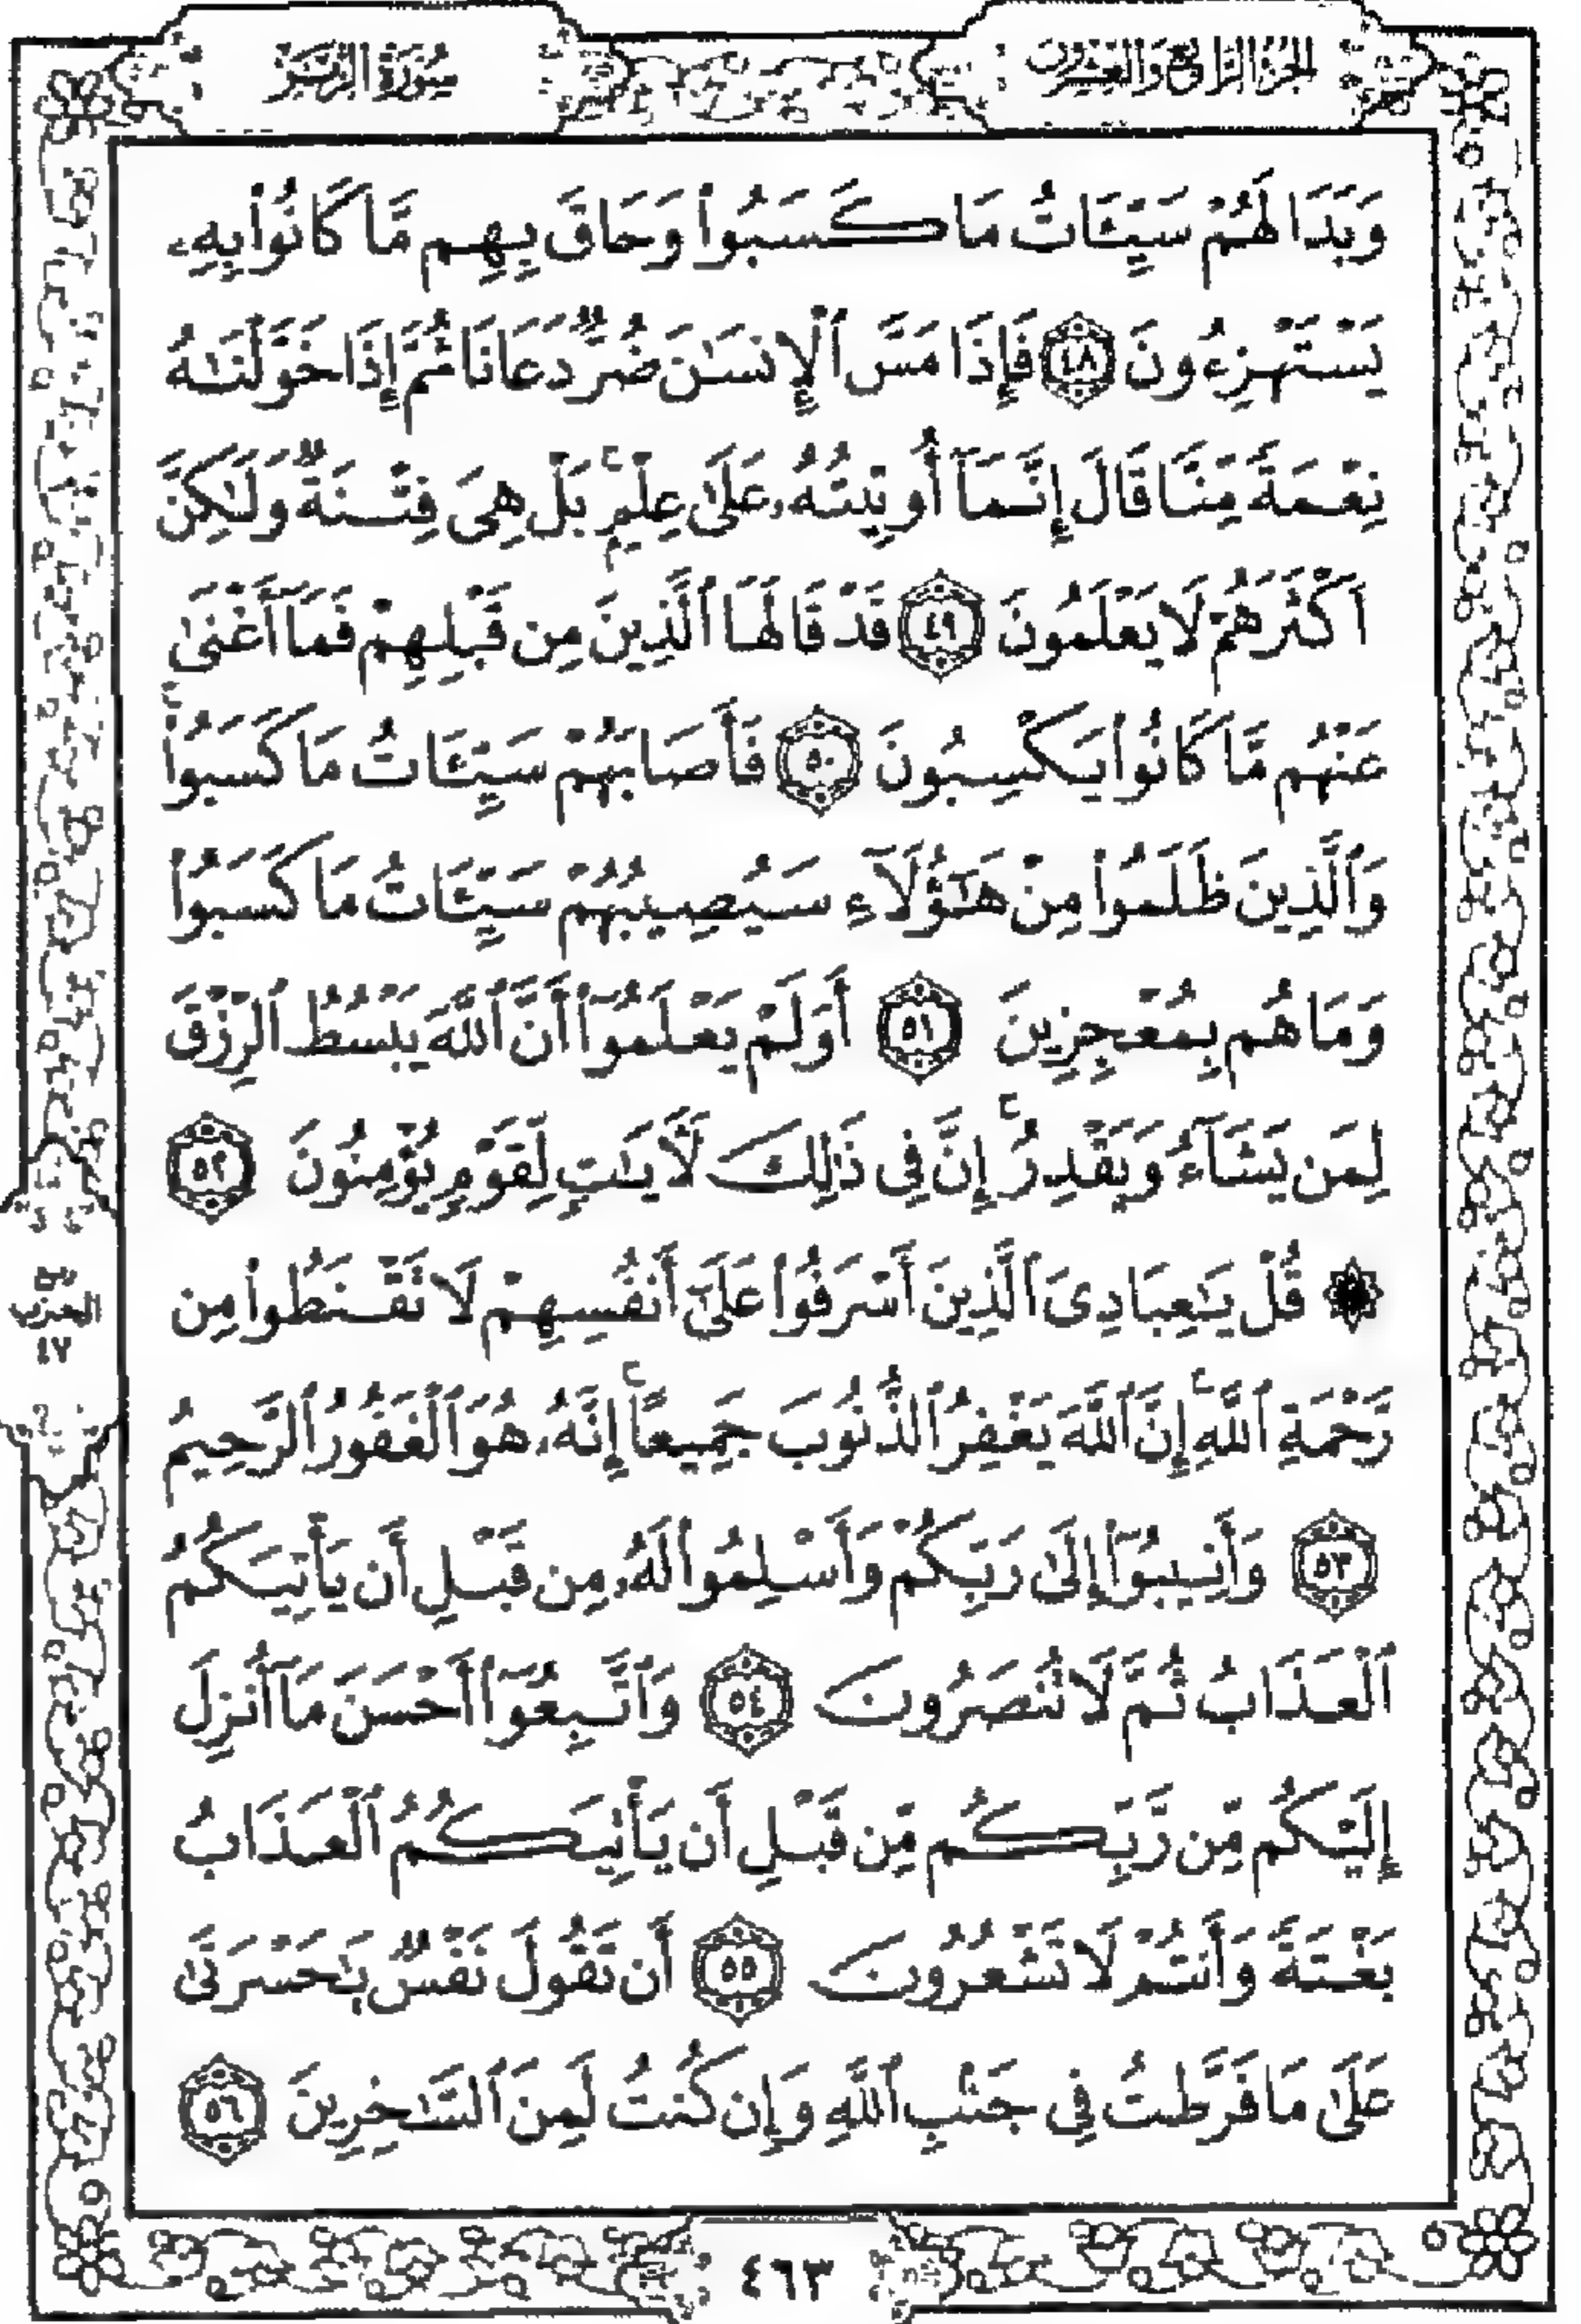 الجزء الرابع والعشرون
سورة الزمر
وَبَدَا لَهُمْ سَيِّـَٔاتُ مَا كَسَبُوا۟ وَحَاقَ بِهِم مَّا كَانُوا۟ بِهِۦ
يَسْتَهْزِءُونَ ٤٨ فَإِذَا مَسَّ ٱلْإِنسَـٰنَ ضُرٌّ دَعَانَا ثُمَّ إِذَا خَوَّلْنَـٰهُ
نِعْمَةً مِّنَّا قَالَ إِنَّمَآ أُوتِيتُهُۥ عَلَىٰ عِلْمٍۭ ۚ بَلْ هِىَ فِتْنَةٌ وَلَـٰكِنَّ
أَكْثَرَهُمْ لَا يَعْلَمُونَ ٤٩ قَدْ قَالَهَا ٱلَّذِينَ مِن قَبْلِهِمْ فَمَآ أَغْنَىٰ
عَنْهُم مَّا كَانُوا۟ يَكْسِبُونَ ٥٠ فَأَصَابَهُمْ سَيِّـَٔاتُ مَا كَسَبُوا۟ ۚ
وَٱلَّذِينَ ظَلَمُوا۟ مِنْ هَـٰٓؤُلَآءِ سَيُصِيبُهُمْ سَيِّـَٔاتُ مَا كَسَبُوا۟
وَمَا هُم بِمُعْجِزِينَ ٥١ أَوَلَمْ يَعْلَمُوٓا۟ أَنَّ ٱللَّهَ يَبْسُطُ ٱلرِّزْقَ
لِمَن يَشَآءُ وَيَقْدِرُ ۚ إِنَّ فِى ذَٰلِكَ لَـَٔايَـٰتٍ لِّقَوْمٍ يُؤْمِنُونَ ٥٢
۞ قُلْ يَـٰعِبَادِىَ ٱلَّذِينَ أَسْرَفُوا۟ عَلَىٰٓ أَنفُسِهِمْ لَا تَقْنَطُوا۟ مِن
رَّحْمَةِ ٱللَّهِ ۚ إِنَّ ٱللَّهَ يَغْفِرُ ٱلذُّنُوبَ جَمِيعًا ۚ إِنَّهُۥ هُوَ ٱلْغَفُورُ ٱلرَّحِيمُ
٥٣ وَأَنِيبُوٓا۟ إِلَىٰ رَبِّكُمْ وَأَسْلِمُوا۟ لَهُۥ مِن قَبْلِ أَن يَأْتِيَكُمُ
ٱلْعَذَابُ ثُمَّ لَا تُنصَرُونَ ٥٤ وَٱتَّبِعُوٓا۟ أَحْسَنَ مَآ أُنزِلَ
إِلَيْكُم مِّن رَّبِّكُم مِّن قَبْلِ أَن يَأْتِيَكُمُ ٱلْعَذَابُ
بَغْتَةً وَأَنتُمْ لَا تَشْعُرُونَ ٥٥ أَن تَقُولَ نَفْسٌ يَـٰحَسْرَتَىٰ
عَلَىٰ مَا فَرَّطتُ فِى جَنۢبِ ٱللَّهِ وَإِن كُنتُ لَمِنَ ٱلسَّـٰخِرِينَ ٥٦
الحزب
٤٧
٤٦٣